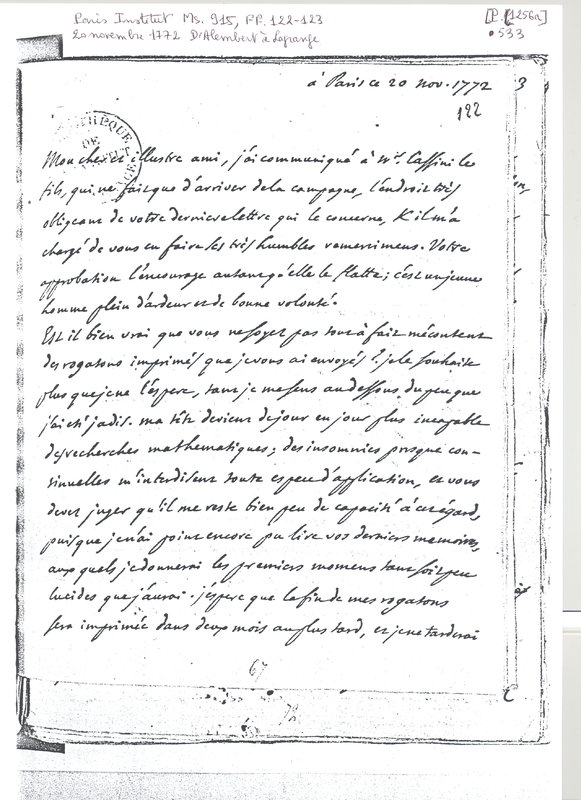 Paris Institut Ms. 915, FF. 122-123
20 novembre 1772 D'Alembert à Lagrange
[P. (1256a)]
• 533
à Paris ce 20 nov. 1772
3
122
Mon cher et illustre ami, j'ai communiqué à Mr. Cassini le
fils, qui ne fait que d'arriver de la campagne, l'endroit très
obligeant de votre derniere lettre qui le concerne, & il m'a
chargé de vous en faire ses très humbles remercimens. Votre
approbation l'encourage autant qu'elle le flatte; c'est un jeune
homme plein d'ardeur et de bonne volonté.
Est il bien vrai que vous ne soyez pas tout à fait mécontent
des rogatons imprimés que je vous ai envoyés? je le souhaite
plus que je ne l'espere, tant je me sens au dessous du peu que
j'ai eté jadis. ma tête devient de jour en jour plus incapable
de recherches mathematiques; des insomnies presque con-
tinuelles m'interdisent toute espece d'application, et vous
devez juger qu'il me reste bien peu de capacité à cet égard,
puisque je n'ai point encore pu lire vos derniers memoires,
aux quels je donnerai les premiers momens tant soit peu
lucides que j'aurai. j'espere que la fin de mes rogatons
sera imprimée dans deux mois au plus tard, et je ne tarderai
67
72